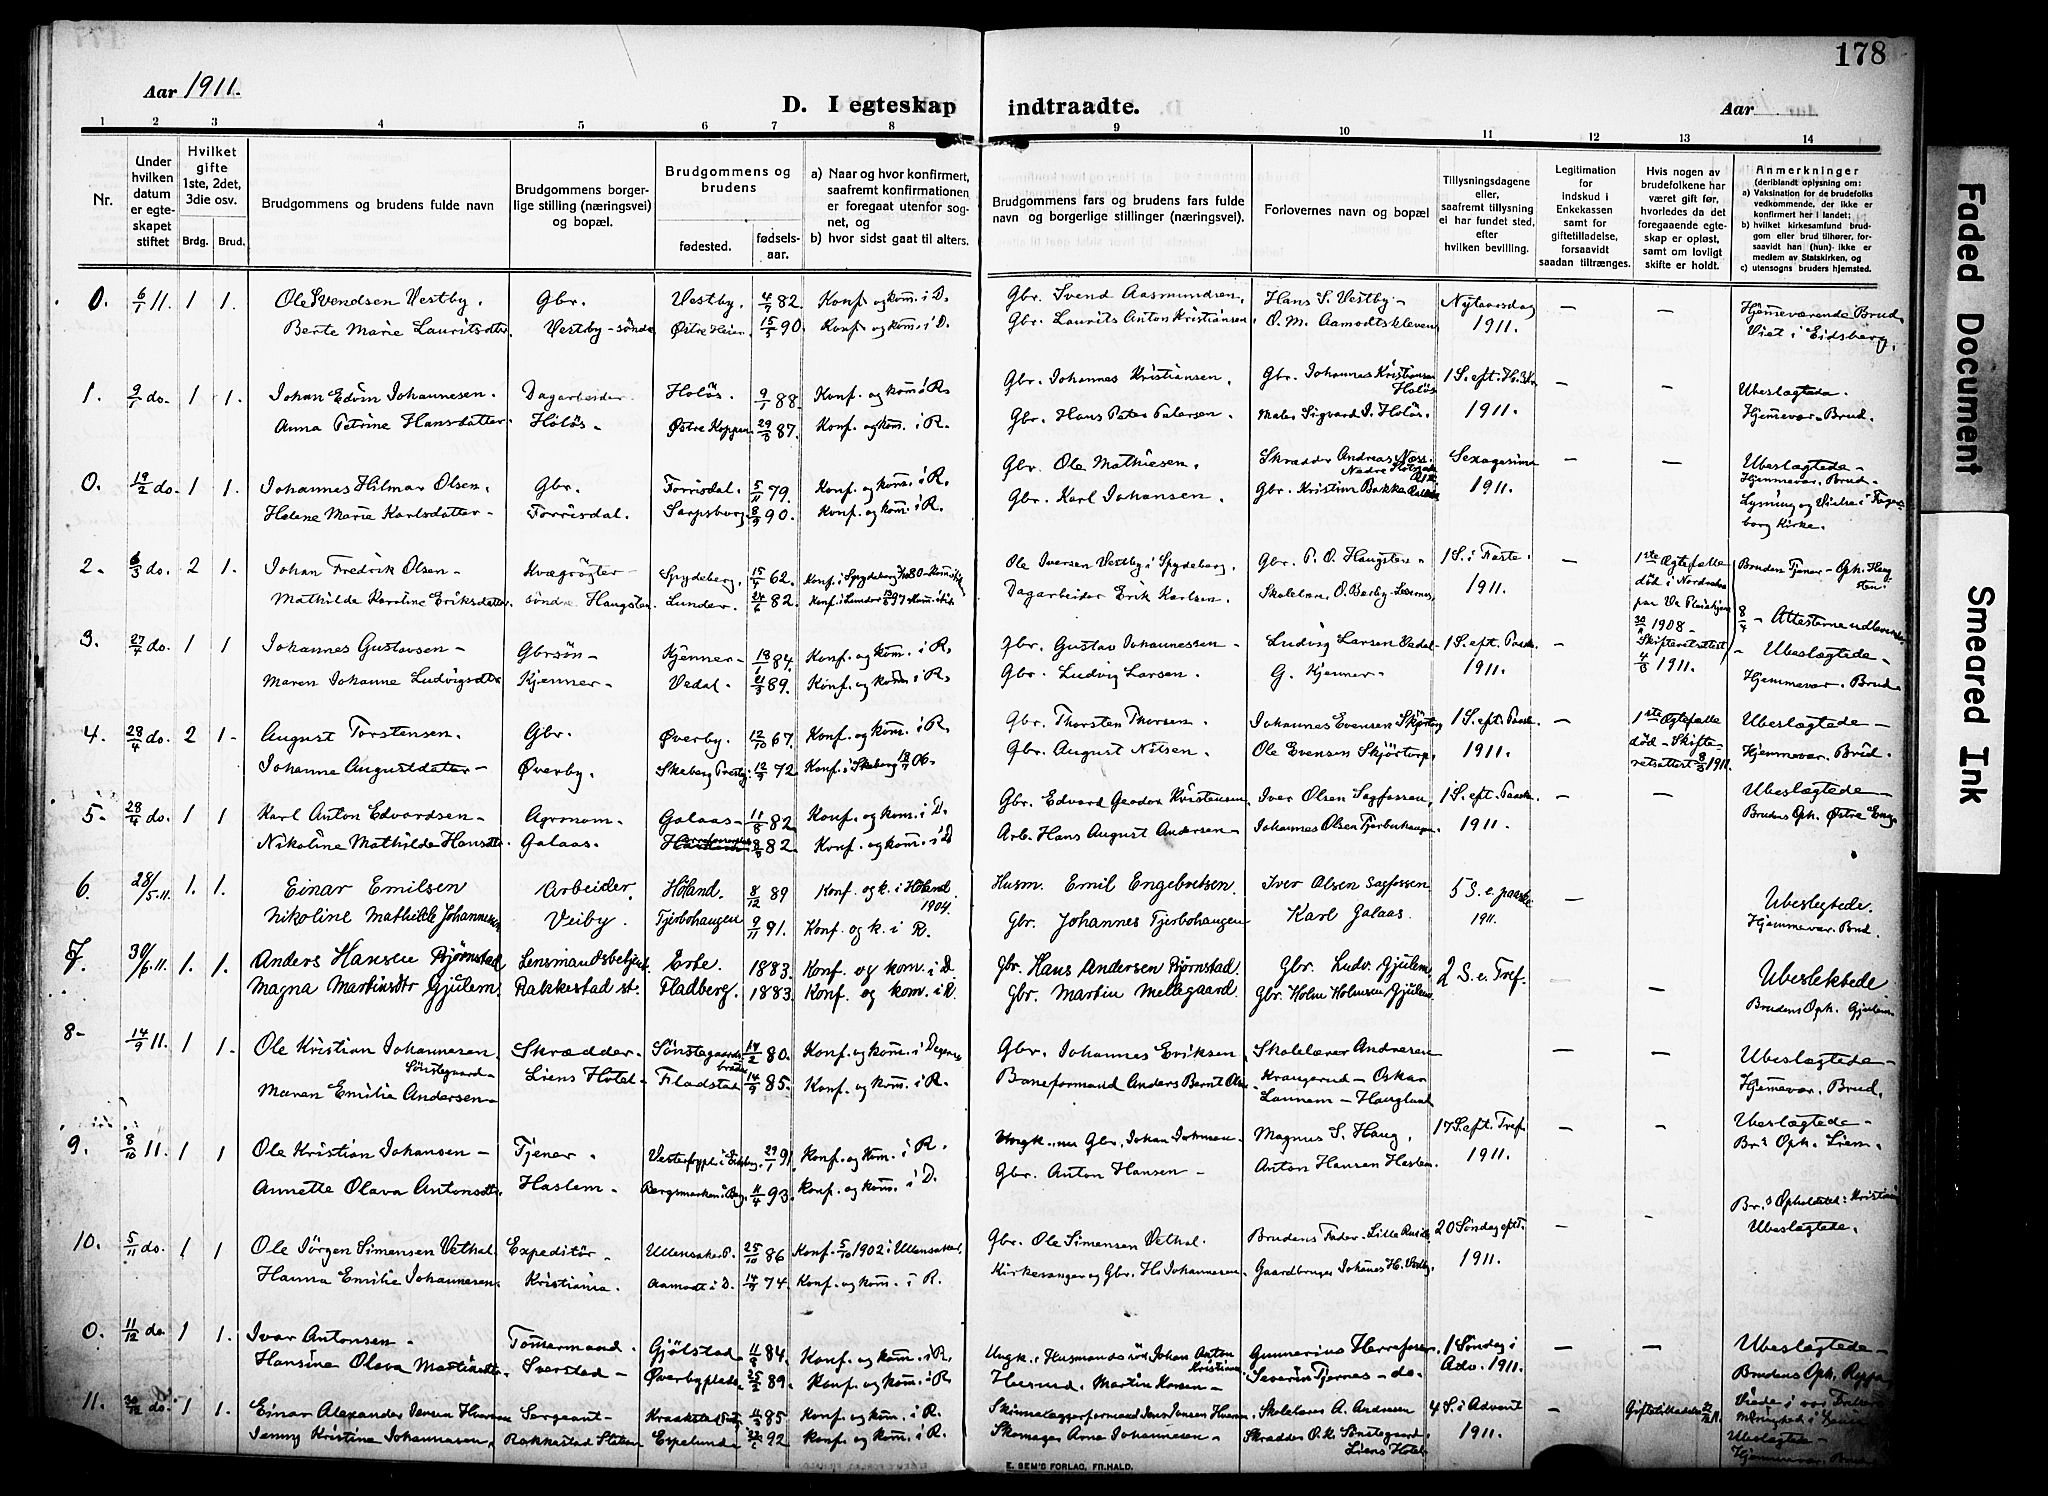 178
Aar 1911.
D. I egteskap indtraadte.
Aar
1 2 3 4 5 6 7 8 9 10 11 12 13 14
Nr.
Under hvilken datum er egte-skapet stiftet
Hvilket gifte 1ste, 2det, 3die osv.
Brdg. Brud.
Brudgommens og brudens fulde navn
Brudgommens borger-lige stilling (næringsvei) og bopæl.
Brudgommens og brudens
fødested.
fødsels-aar.
a) Naar og hvor konfirmert, saafremt konfirmationen er foregaat utenfor sog-net, og
b) hvor sidst gaat til alters.
Brudgommens fars og brudens fars fulde navn og borgerlige stillinger (næringsvei).
Forlovernes navn og bopæl
Tillysningsdagene eller, saafremt tillysning ei har fundet sted, efter hvilken bevilling.
Legitimation for indskud i Enkekassen samt for giftetilladelse, forsaavidt saadan tiltrænges.
Hvis nogen av brudefolkene har været gift før, hvorledes da det foregaaende egte-skap er opløst, samt om lovligt skifte er holdt.
Anmerkninger (deriblandt oplysning om:
a) Vaksination for de brudefolks vedkommende, der ikke er konfirmert her i landet;
b) hvilket kirkesamfund brud-gom eller brud tilhører, for-saavidt han (hun) ikke er medlem av Statskirken, og
c) utensogns bruders hjemsted.
0. 6/1 11. 1 1. Ole Svendsen Vestby. Gbr. Vestby. 4/7 82. Konf. og kom. i D. Gbr. Svend Aasmundsen. Hans S. Vestby - Nytaarsdag — — Hjemmeværende Brud.
Berte Marie Lauritsdtr. Vestby - søndre Østre Heier 15/5 90. Konf. og kom. i D. Gbr. Laurits Anton Kristiansen. O. M. Aamodtskleven 1911. Viet i Eidsberg.
1. 9/1 do. 1 1. Johan Edvin Johannesen. Dagarbeider. Holøs. 9/1 88. Konf. og kom. i R. Gbr. Johannes Kristiansen. Gbr. Johannes Kristiansen Holøs 1 S. eft. H. 3 K. — — Ubeslægtede.
Anna Petrine Hansdatter. Holøs - Østre Koppen. 29/8 87. Konf. og kom. i R. Gbr. Hans Peter Petersen. Maler Sigvard J. Holøs. 1911. Hjemmevær. Brud.
0. 19/2 do. 1 1. Johannes Hilmar Olsen. Gbr. Torrisdal. 5/11 79. Konf. og kom. i R. Gbr. Ole Mathiesen. Skrædder Andreas Næss. Sexagesima — — Ubeslægtede - Hjemmevær. Brud -
Helene Marie Karlsdatter - Torrisdal. Sarpsborg. 8/9 90. Konf. og kom. i R. Gbr. Karl Johansen. Gbr. Kristian Bakke 1911. Lysning og Vielse i borg Kirke.
2. 6/3 do. 2 1. Johan Fredrik Olsen - Kvægrøgter - Spydeberg. 15/4 62. Konf. i Spydeberg 80 - Ole Iversen Vestby i Spydeberg. Gbr. P. O. Haugsten - 1 S. i Faste. — 1ste Ægtefælle død i 1908 - Bruden Tjener - Oph. Haugsten.
Mathilde Karoline Eriksdatter. søndre Haugsten. Lunder. 24/6 82. Konf. i Lunder 97 Dagarbeider Erik Karlsen. Skolelær. O. Barby 1911. Skifteretsattest 4/3 1911. 8/4 - Attesterne udleveret
3. 27/4 do. 1 1 Johannes Gustavsen - Gbrsøn - Kjenner - 13/1 84. Konf. og kom. i R. Gbr. Gustav Johannessen - Ludvig Larsen Vedal - 1 S. eft. Paask. — - Ubeslægtede -
Maren Johanne Ludvigsdtr. Kjenner - Vedal. 21/3 89. Konf. og kom. i R. Gbr. Ludvig Larsen. G. Kjenner - 1911. Hjemmevær. Brud.
4. 28/4 do. 2 1 - August Torstensen. Gbr. Øverby. 12/10 67. Konf. og kom. i R. Gbr. Thorsten Thorsen. Johannes Evensen Skjørtorp 1 S. eft. Paask. — 1ste Ægtefælle død - Skifteretsattest 8/3 1911. Ubeslægtede -
Johanne Augustdatter - Øverby. Skeberg 72. Konf. i Skeberg 06. Gbr. August Nilsen. Ole Evensen Skjørtorp. 1911. Hjemmevær. Brud.
5. 28/4 do. 1 1 Karl Anton Edvardsen - Agronom - Galaas - 11/8 82. Konf. og kom. i D. Gbr. Edvard Geodor Kristensen. Iver Olsen Sagfossen. 1 S. eft. Paask. — — Ubeslægtede -
Nikoline Mathilde Hansdtr. Galaas. 82. Konf. og kom. i D Arb. Hans August Andersen - Johannes Olsen Tjerbuhaugen. 1911. Brudens Oph. Østre Eng.
6. 28/5. 11. 1. 1. Einar Emilsen Arbeider, Høland. 8/12 89 Konf. og k. i Høland 1904. Husm. Emil Engebretsen. Iver Olsen Sagfossen 5 S. e. paaske — Ubeslægtede.
Nikoline Mathilde Johannesen Veiby. Tjerbohaugen 9/11 91. Konf. og k. i R. Gbr. Johannes Tjerbohaugen Karl Galaas. 1911. Hjemmevær. Brud.
7. 30/6. 11. 1. 1. Anders Hansen Bjørnstad Lensmandsbetjent. Erte. 1883. Konf. og kom. i D. Gbr. Hans Andersen Bjørnstad. Gbr. Ludv. Gjulem, 2 S. e. Tref. — — Ubeslektede
Magna Martinsdtr Gjulem. Rakkestad st. Fladberg. 1883. Konf. og kom. i R. Gbr. Martin Mellegaard. Gbr. Holm Holmsen Gjulem. Brudens Oph. Gjulem
8 - 14/9 11. 1 1. Ole Kristian Johannesen Sønstegaard - Skrædder - Sønstegaard 14/2 80. Konf. og kom. i Degernes Gbr. Johannes Eriksen. Skolelærer Andresen — — Ubeslægtede -
Maren Emilie Andersen - Liens Hotel - Fladstad 14/9 85. Konf. og kom. i R. Baneformand Anders Bernt Olsen - Krangerud - Oskar Launem - Haugland Hjemmevær. Brud.
9. 8/10 11. 1 1 Ole Kristian Johansen - Tjener. 29/1 91. Konf. og kom. i R. Ungk. nu Gbr. Johan Johnsen. Magnus S. Haug. 17 S. eft. Tref. — — Ubeslægtede - Br.s Oph. Liem -
Annette Olava Antonsdtr. Haslem - Bergsmarken i Berg. 11/4 93. Konf. og kom. i D. Gbr. Anton Hansen - Anton Hansen Haslem. 1911.
10. 5/11 do. 1 1 Ole Jørgen Simensen Vethal. Expeditør - Ullensaker P. 25/10 86 Konf. 5/10 1902 i Ullensaker. Gbr. Ole Simensen Vethal. Brudens Fader - Lille 20 Søndag eft T. — — Br.s Opholdsted: Kristiania Ubeslægtede.
Hanna Emilie Johannesen. Kristiania. Aamodt i D. 14/9 74. Konf. og kom. i R. Kirkesanger og Gbr. H. Johannesen. Gaardbruger Johannes H. Vestby. 1911.
0. 11/12 do. 1 1. Ivar Antonsen - Tømmermand. Gjølstad. 11/8 84. Konf. og kom. i R. Ungk. Husmandssøn Johan Anton Kristiansen Gunnerius Herrefosen. 1 Søndag i — — Ubeslægtede -
Hansine Olava Martinsdtr. Sverstad - Øverbyplads. 25/2 89. Konf. og kom. i R. Husmd. Martin Hansen - Severin Tjernes - do. Adv. 1911. Brudens Oph.
11. do. 1 1. Einar Alexander Jensen Sergeant - Kraakstad 11/3 85 Konf. og kom. i R. Jens Jensen Skolelærer A. Andresen 4 S. i Advent — Giftetilladelse Viede i
Jenny Kristine Johannesen, Rakkestad Station Espelund 92 Konf. og kom. i R. Skomager Arne Johannesen - Skrædder O. K. Sønstegaard. Liens Hotel 1911. Ubeslægtede - Hjemmevær. Brud
E. SEM'S FORLAG, FR.HALD.
Faded Document
Smeared Ink